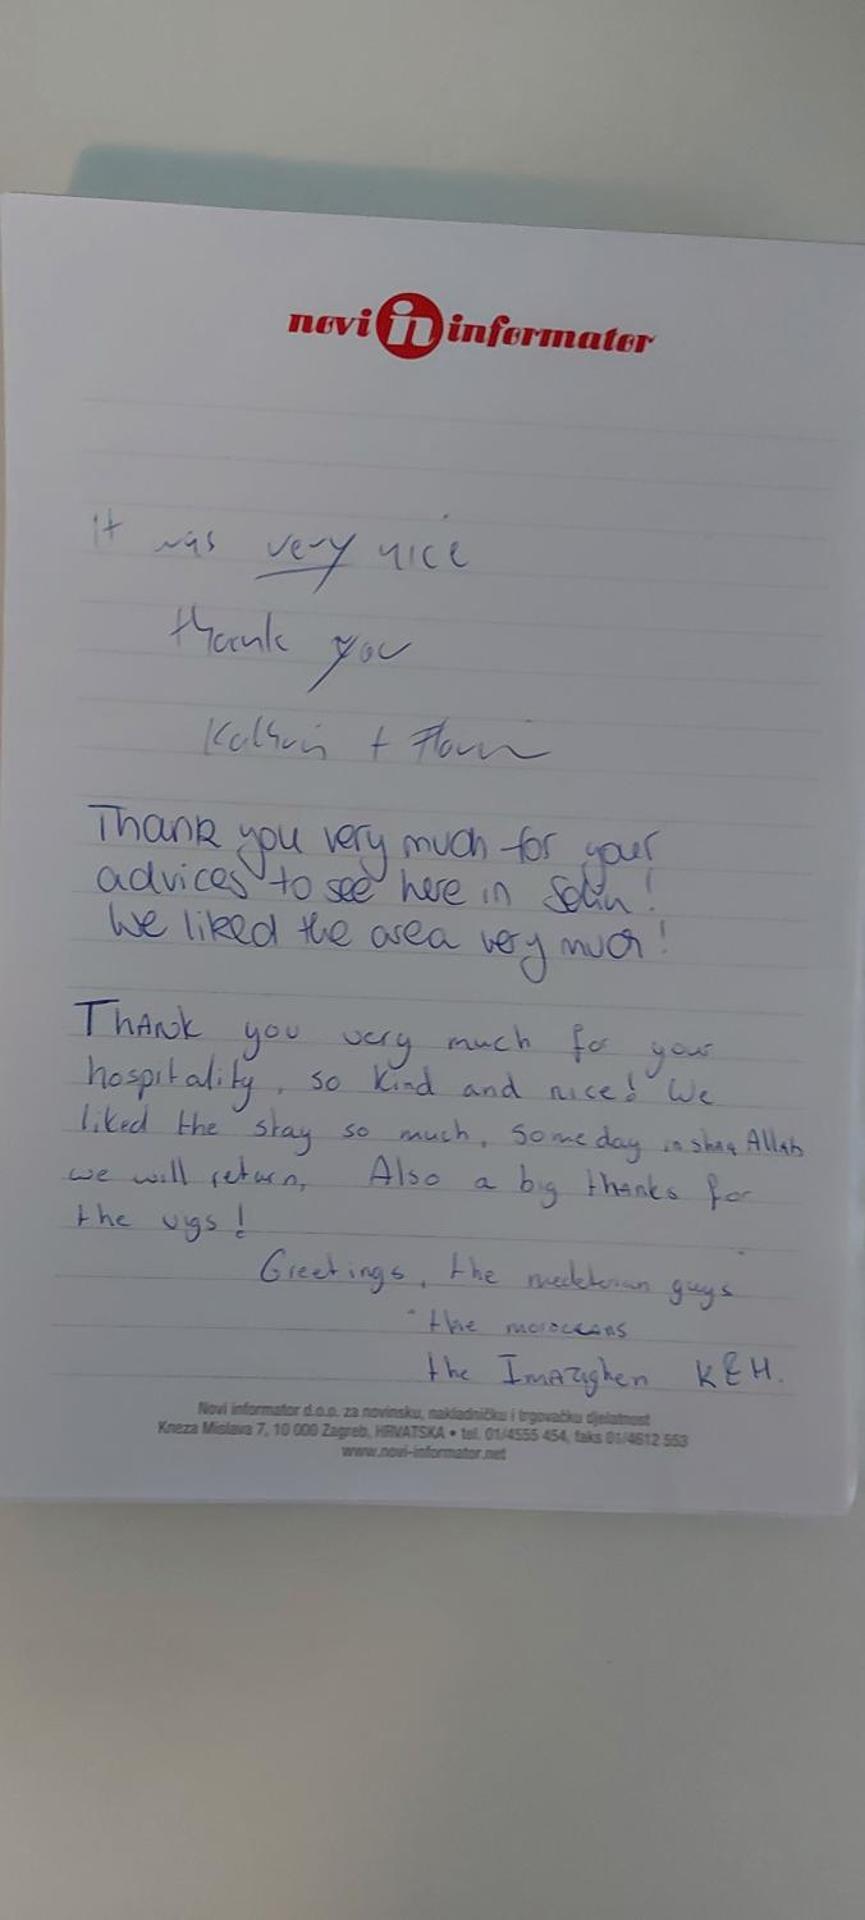 novi in informator
It was very nice
thank you
+
Thank you very much for your
advices to see here in Solin!
We liked the area very much!
Thank you very much for your
hospitality, so kind and nice! We
liked the stay so much, someday inshaa Allah
we will return, Also a big thanks for
the vgs!
Greetings, the guys
"the moroccans
the Imazighen K&H.
Novi informator d.o.o. za novinsku, nakladničku i trgovačku djelatnost
Kneza Mislava 7, 10 000 Zagreb, HRVATSKA • tel. 01/4555 454, faks 01/4612 553
www.novi-informator.net